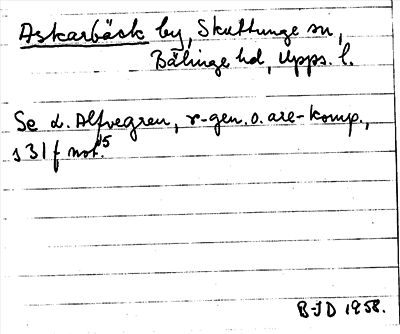 Askarbäck by, Skuttunge sn,
Bälinge hd, Upps. l.
Se L. Alfvegren, r-gen. o. are-komp.,
s 31 f not 15
B-JD 1958.